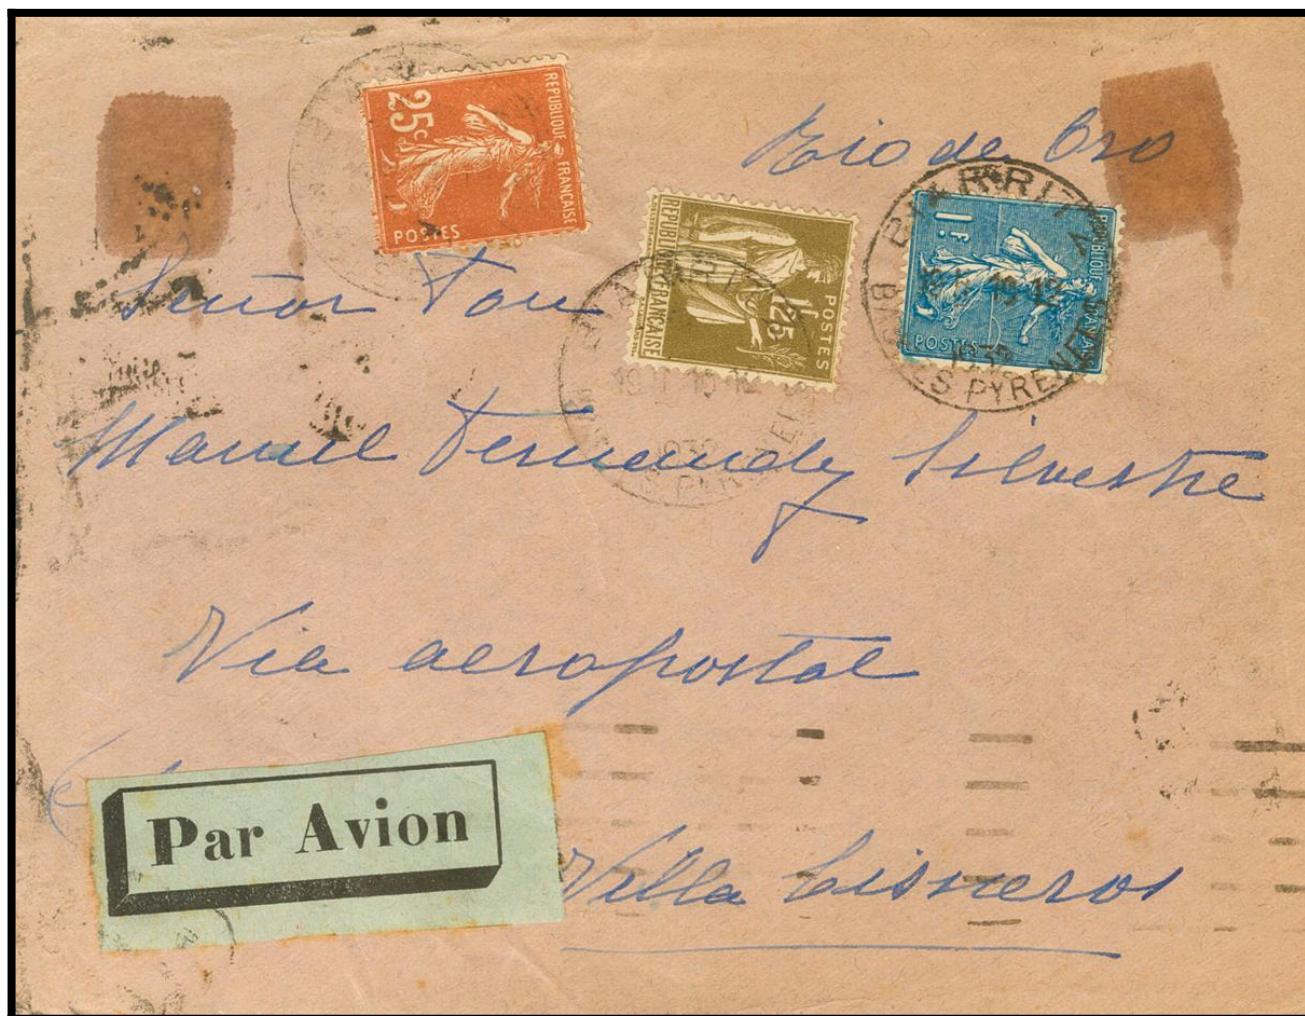 Rio de Oro
REPUBLIQUE FRANÇAISE
25c
POSTES
REPUBLIQUE FRANÇAISE
1F25
POSTES
1F
REPUBLIQUE FRANÇAISE
POSTES
BIARRITZ
1932
BSES PYRENEES
Señor Don
Manuel Fernandez Silvestre
Via aeropostal
Par Avion
Villa Cisneros